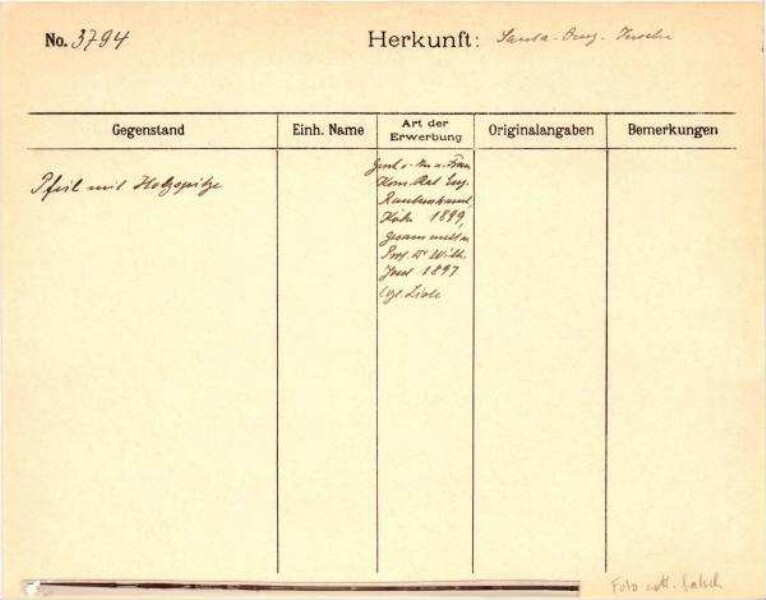 No. 3794
Herkunft: Santa-Cruz-Inseln
Gegenstand
Einh. Name
Art der
Erwerbung
Originalangaben
Bemerkungen
Pfeil mit Holzspitze
Gesch. v. Frau
Kom. Rat Eug.
Rautenstrauch
Köln 1899,
gesammelt v.
Prof. Dr Wilh.
Joest 1897
Foto